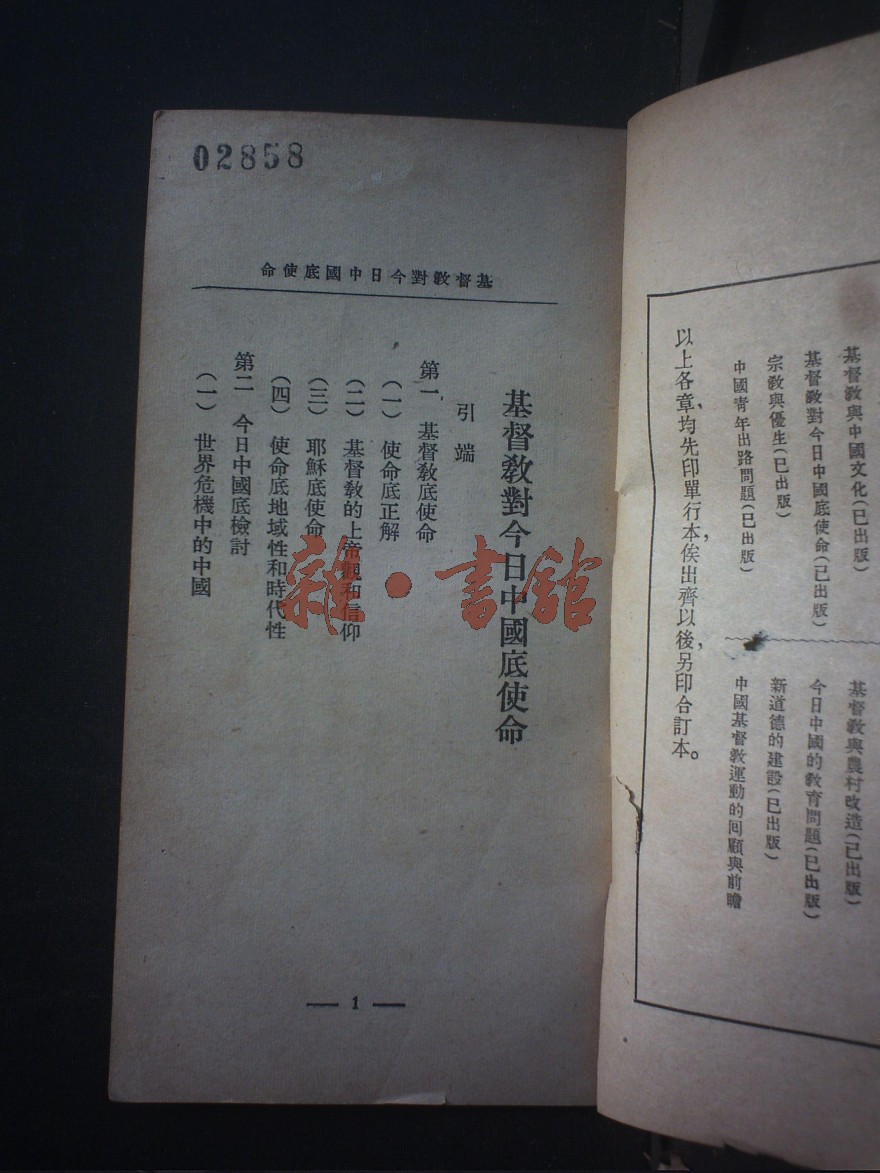 基督教與中國文化(已出版)
基督教對今日中國底使命(已出版)
宗教與優生(已出版)
中國青年出路問題(已出版)
基督教與農村改造(已出版)
今日中國的教育問題(已出版)
新道德的建設(已出版)
中國基督教運動的回顧與前瞻
以上各章，均先印單行本，俟出齊以後，另印合訂本。
02858
基督教對今日中國底使命
基督教對今日中國底使命
引端
第一 基督教底使命
(一) 使命底正解
(二) 基督教的上帝觀和信仰
(三) 耶穌底使命
(四) 使命底地域性和時代性
第二 今日中國底檢討
(一) 世界危機中的中國
— 1 —
雜·書館